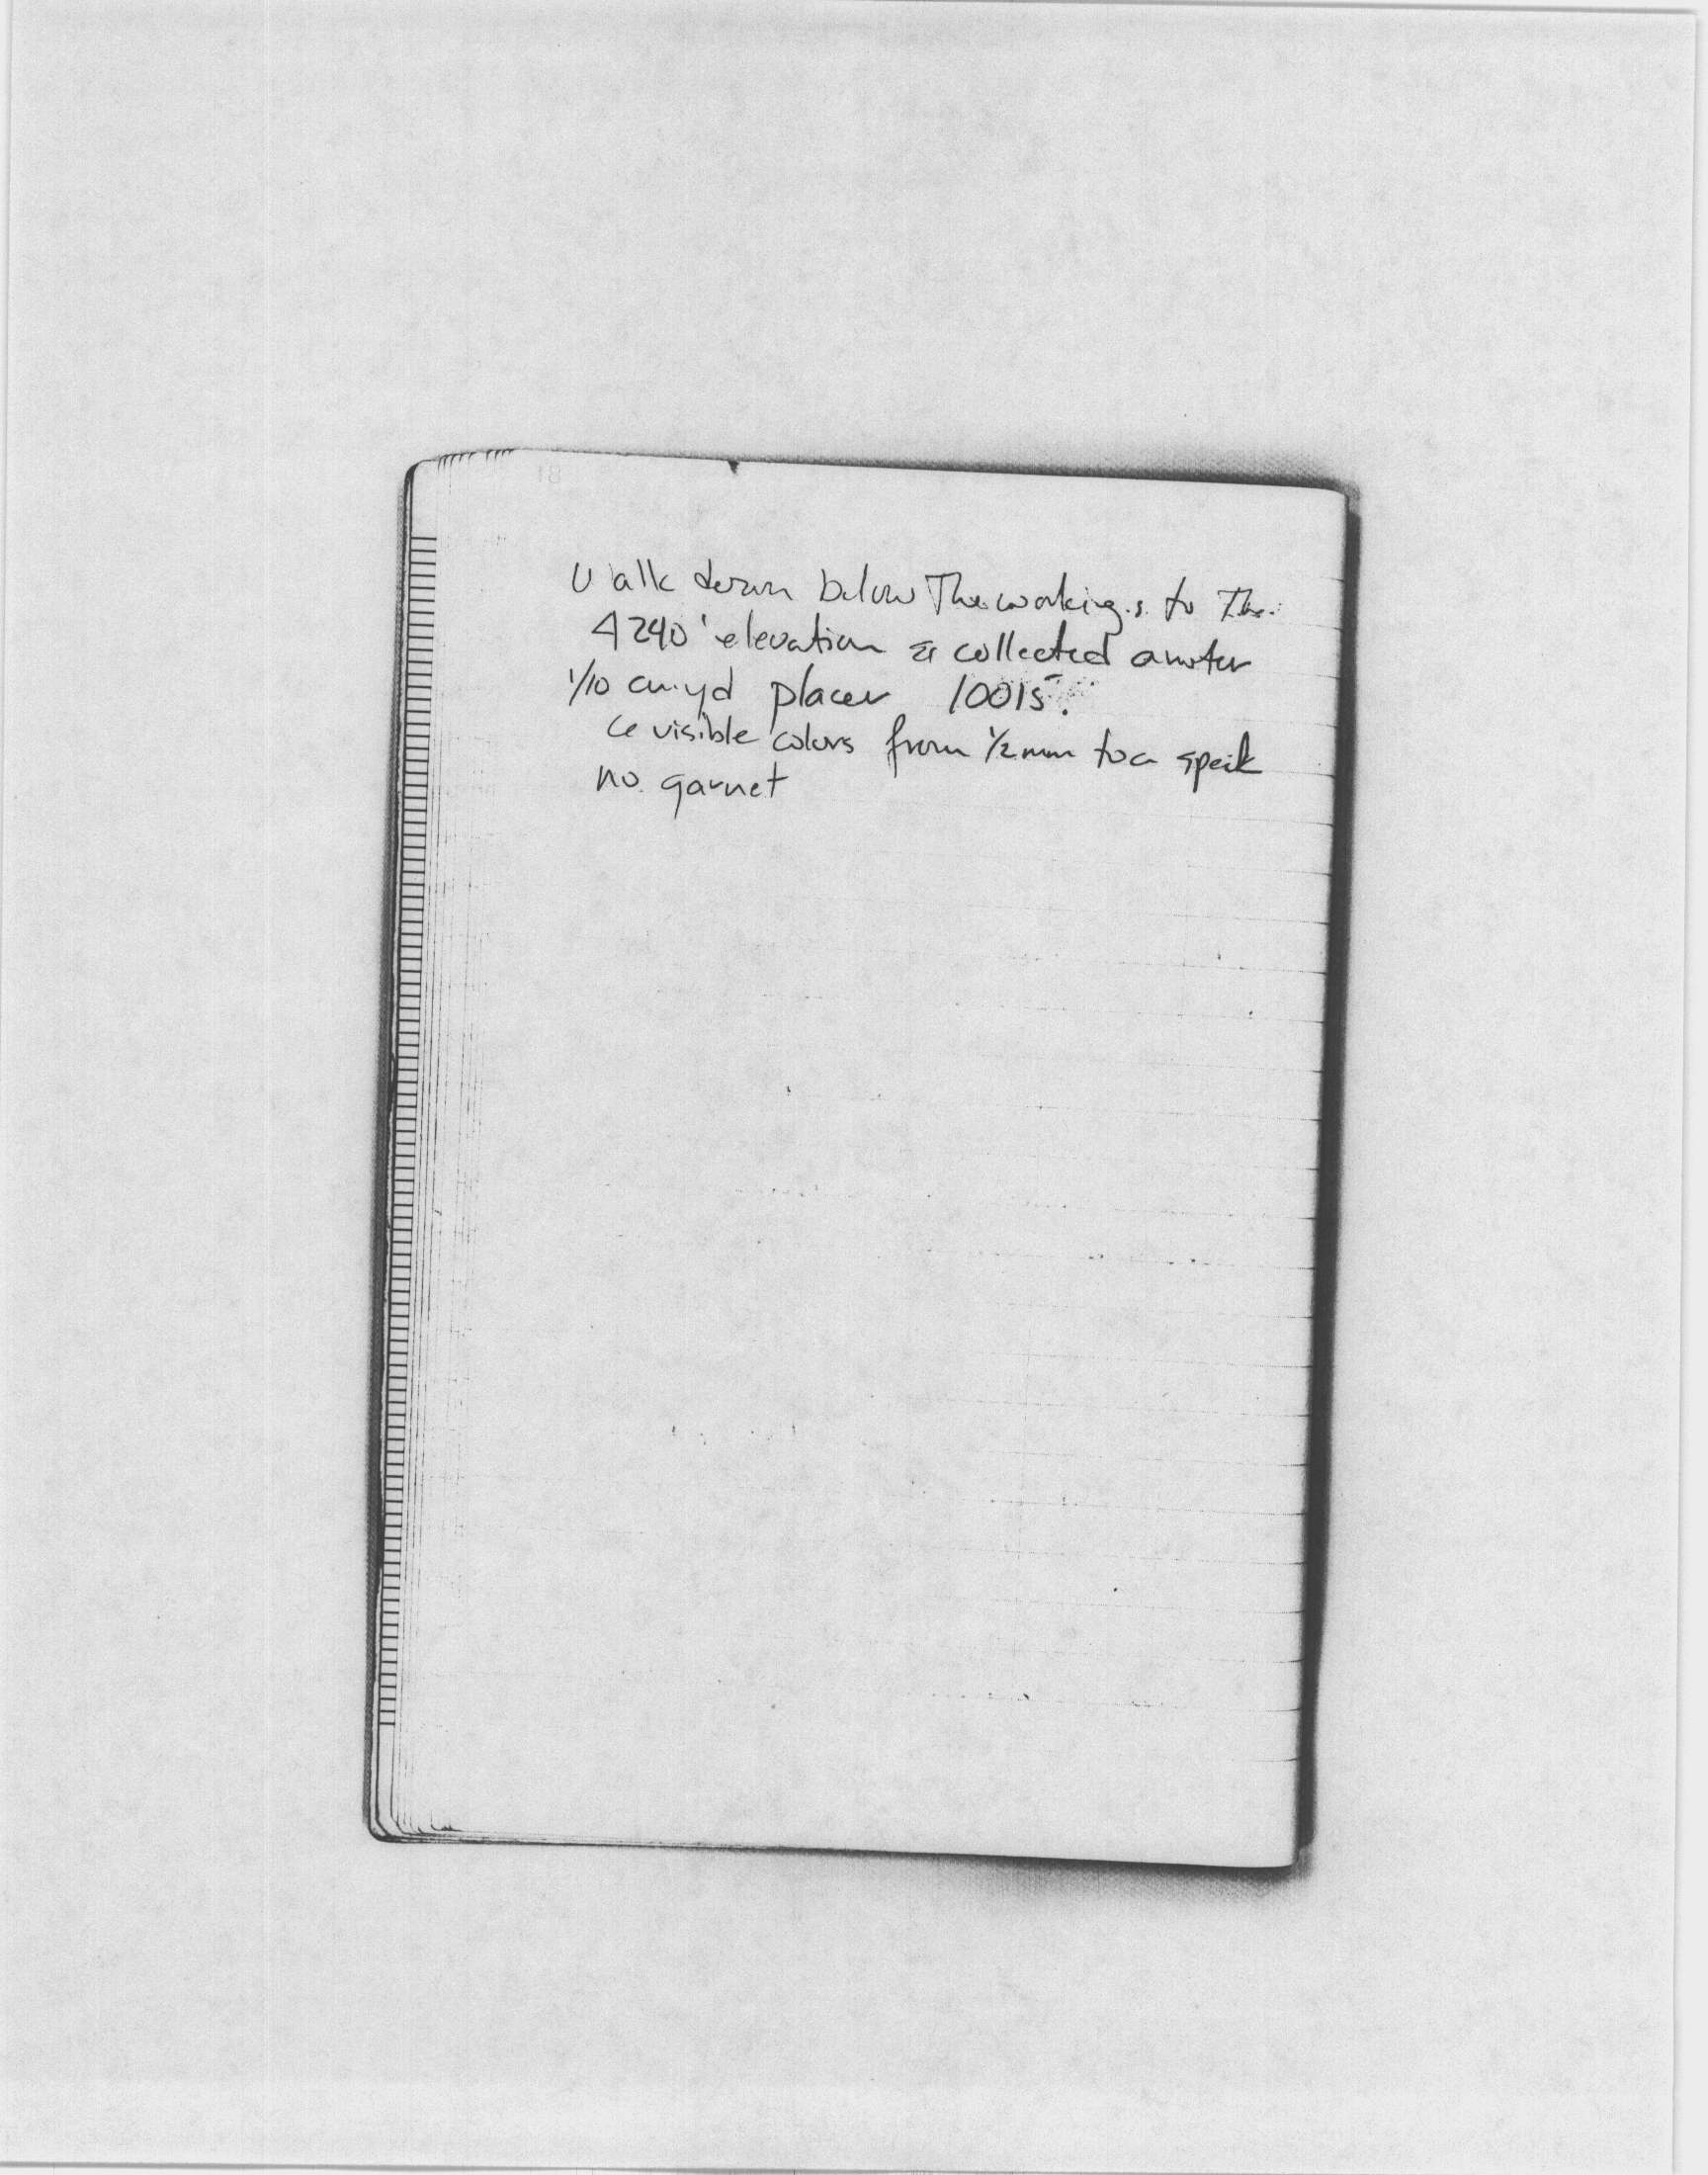 Walk down below The workings to The
4240' elevation & collected anoter
1/10 cu.yd placer 10015.
6 visible colors from 1/2mm to a speck
no garnet